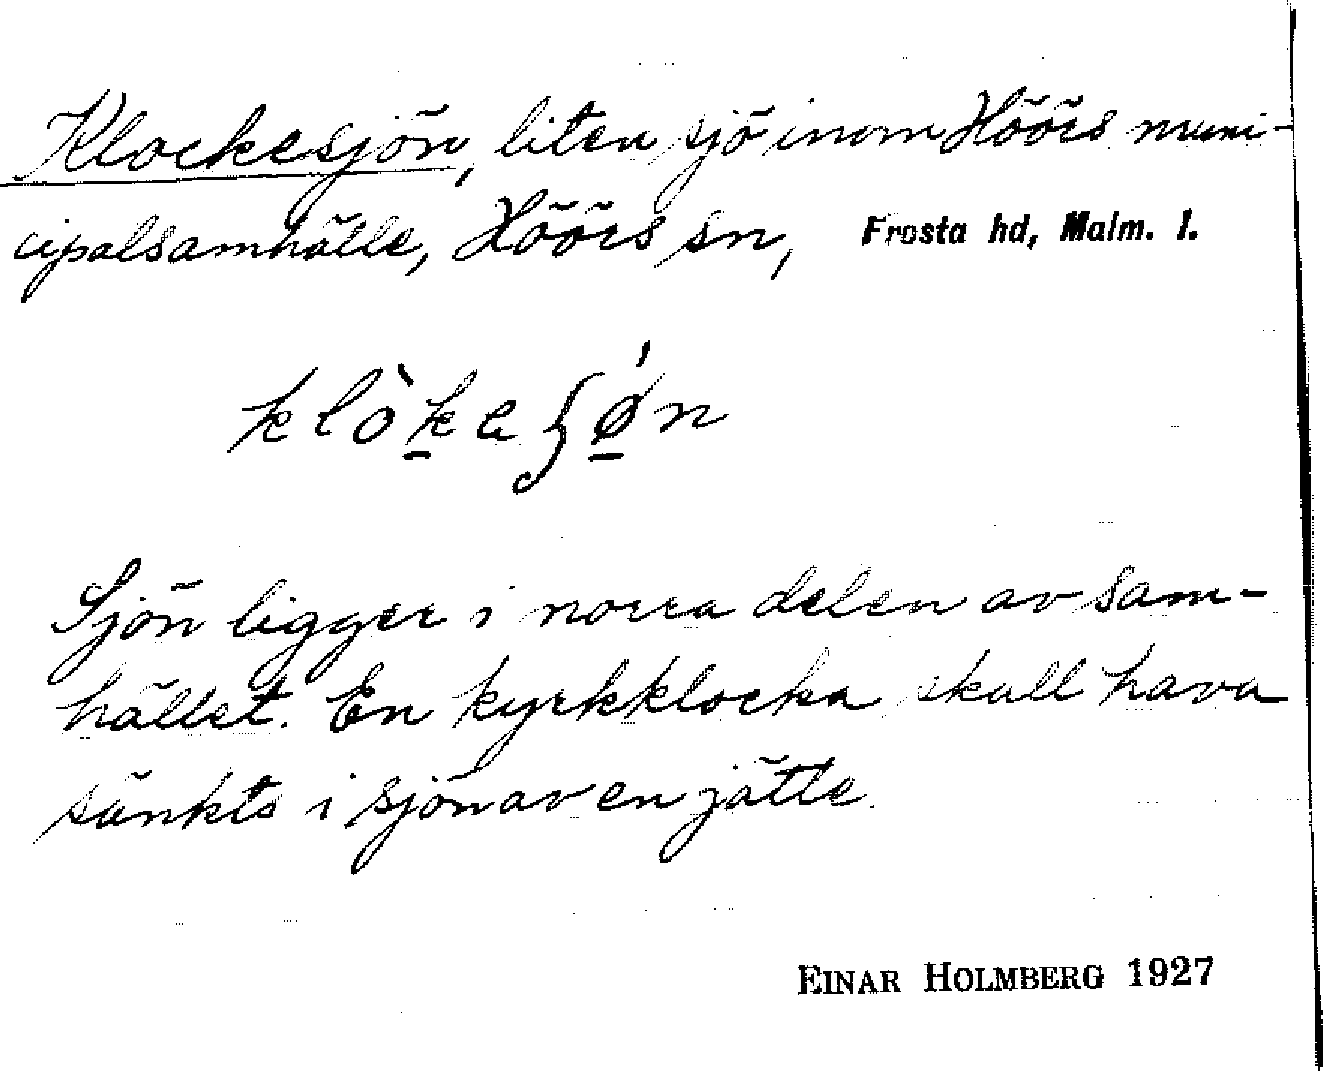 Klockesjön, liten sjö inom Höörs muni-
cipalsamhälle, Höörs sn, Frosta hd, Malm. l.
klòkaʃǿn
Sjön ligger i norra delen av sam-
hället. En kyrkklocka skall hava
sänkts i sjön av en jätte.
EINAR HOLMBERG 1927